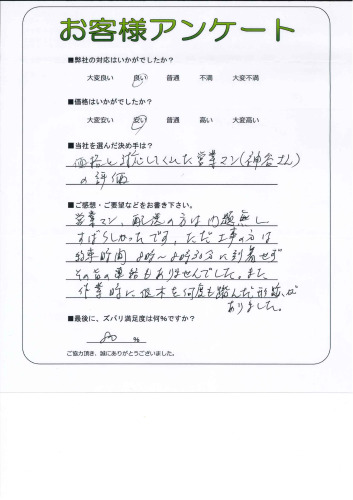 お客様アンケート
■弊社の対応はいかがでしたか？
大変良い 良い 普通 不満 大変不満
■価格はいかがでしたか？
大変安い 安い 普通 高い 大変高い
■当社を選んだ決め手は？
価格と対応してくれた営業マン(神谷さん)
の評価
■ご感想・ご要望などをお書き下さい。
営業マン、配送の方は問題無し
すばらしかったです。ただ工事の方は
約束時間 8時〜8時30分に到着せず
その旨の連絡もありませんでした。また
作業時に低木を何度も踏んだ形跡が
ありました。
■最後に、ズバリ満足度は何%ですか？
80 %
ご協力頂き、誠にありがとうございました。